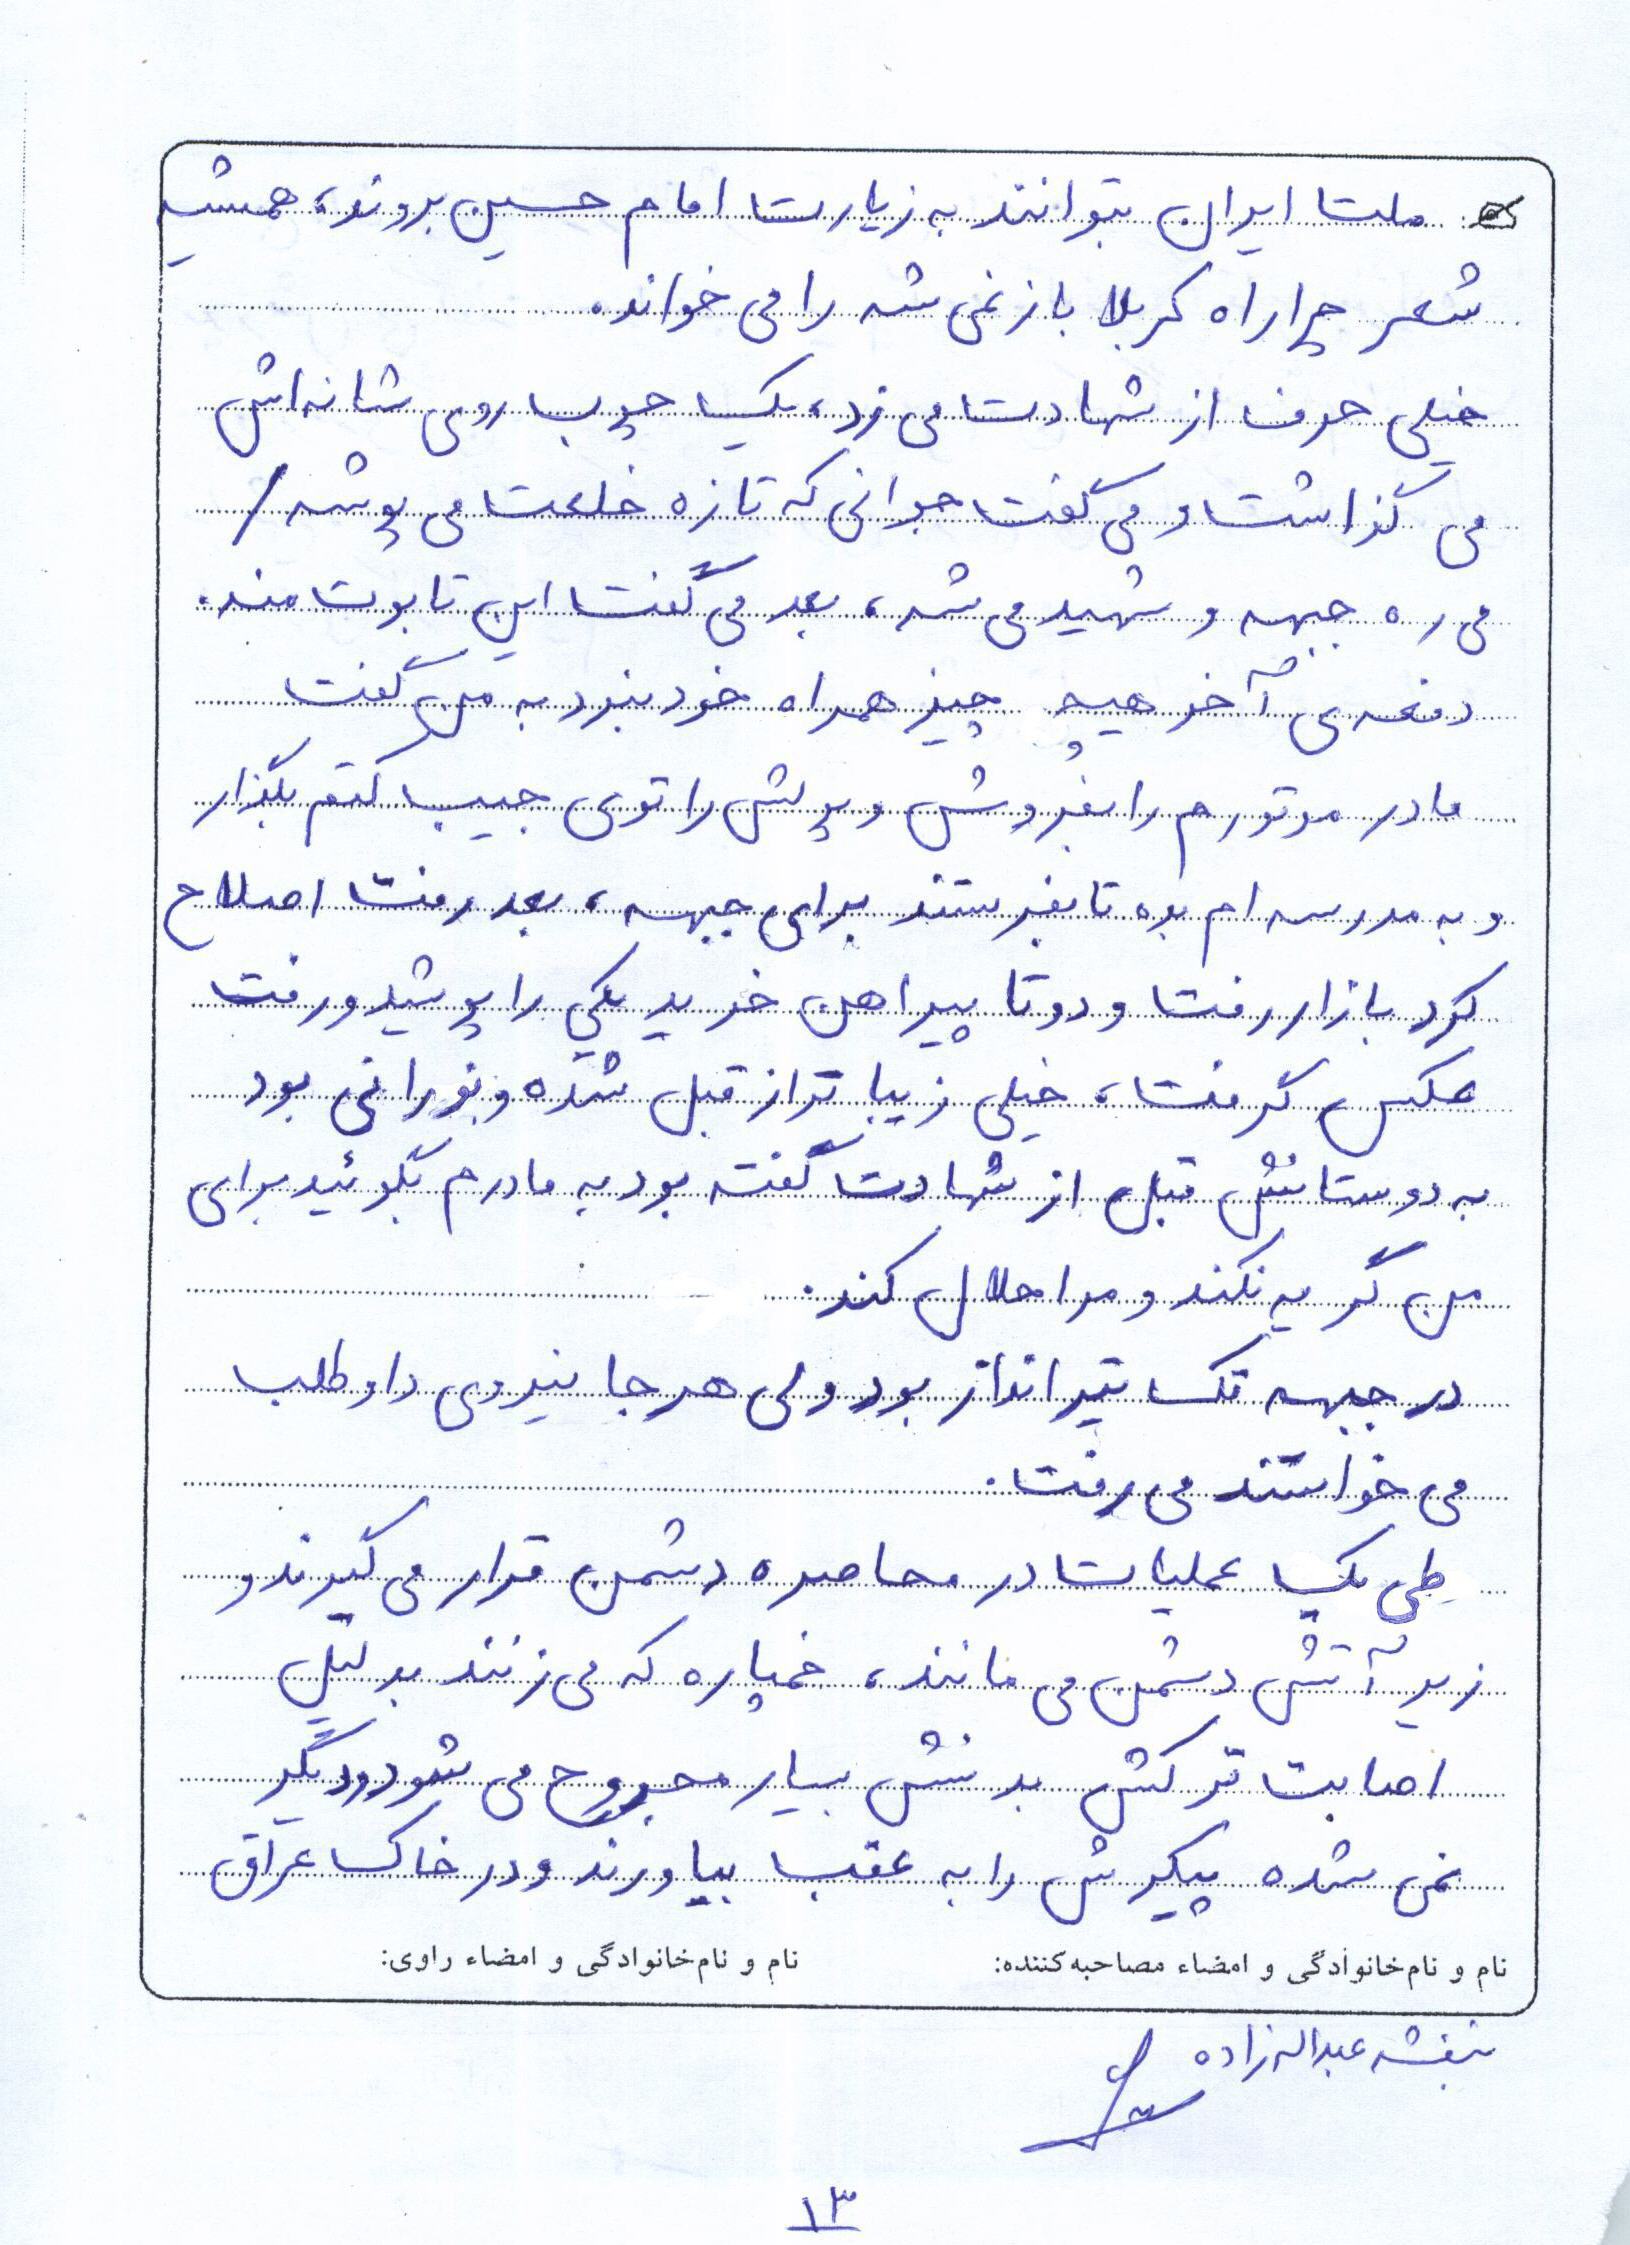 ملت ایران بتوانند به زیارت امام حسین بروند، همیشه
شعر چرا راه کربلا باز نمی شه را می خواند.
خیلی حرف از شهادت می زد، یک چوب روی شانه‌اش
می گذاشت و می گفت جوانی که تازه خلعت می پوشه /
می ره جبهه و شهید می شه، بعد می گفت این تابوت منه.
دفعه‌ی آخر هیچ چیز همراه خود نبرد به من گفت
مادر موتورم را بفروش و پولش را توی جیب کتم بگذار
و به مدرسه ام بده تا بفرستند برای جبهه، بعد رفت اصلاح
کرد بازار رفت و دو تا پیراهن خرید یکی را پوشید و رفت
عکس گرفت، خیلی زیبا تر از قبل شده و نورانی بود
به دوستانش قبل از شهادت گفته بود به مادرم بگوئید برای
من گریه نکند و مرا حلال کند.
در جبهه تک تیرانداز بود ولی هر جا نیروی داوطلب
می خواستند می رفت.
طی یک عملیات در محاصره دشمن قرار می گیرند و
زیر آتش دشمن می مانند، خمپاره که می زنند بدلیل
اصابت ترکش بدنش بسیار مجروح می شود و دیگر
نمی شده پیکرش را به عقب بیاورند و در خاک عراق
نام و نام‌خانوادگی و امضاء مصاحبه‌کننده: نام و نام‌خانوادگی و امضاء راوی:
بنفشه عبداله زاده
۱۳